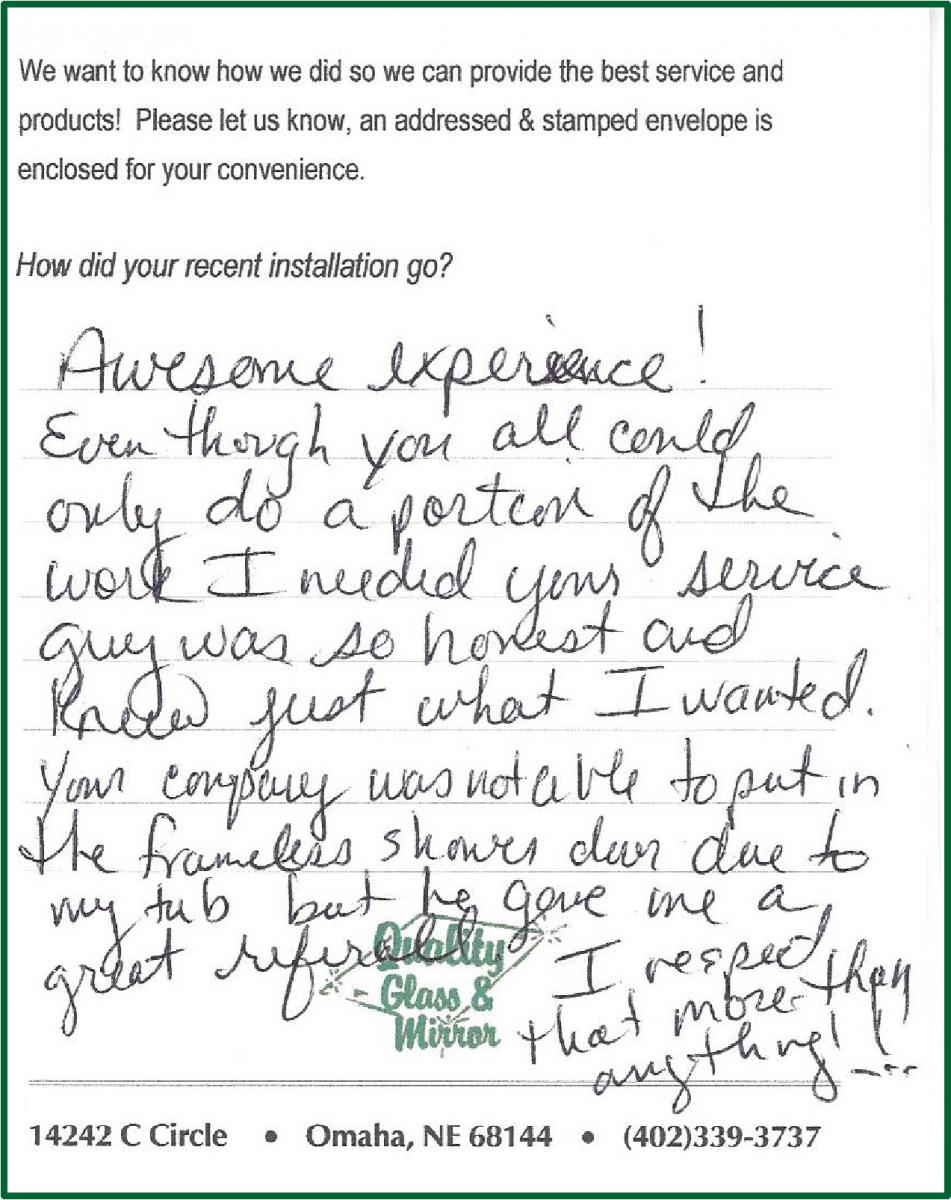 We want to know how we did so we can provide the best service and
products! Please let us know, an addressed & stamped envelope is
enclosed for your convenience.
How did your recent installation go?
Awesome experience!
Even though you all could
only do a portion of the
work I needed your service
guy was so honest and
knew just what I wanted.
Your company was not able to put in
the frameless shower door due to
my tub but he gave me a
great referall.
I respect
that more than
anything!!
Quality
Glass &
Mirror
14242 C Circle • Omaha, NE 68144 • (402)339-3737